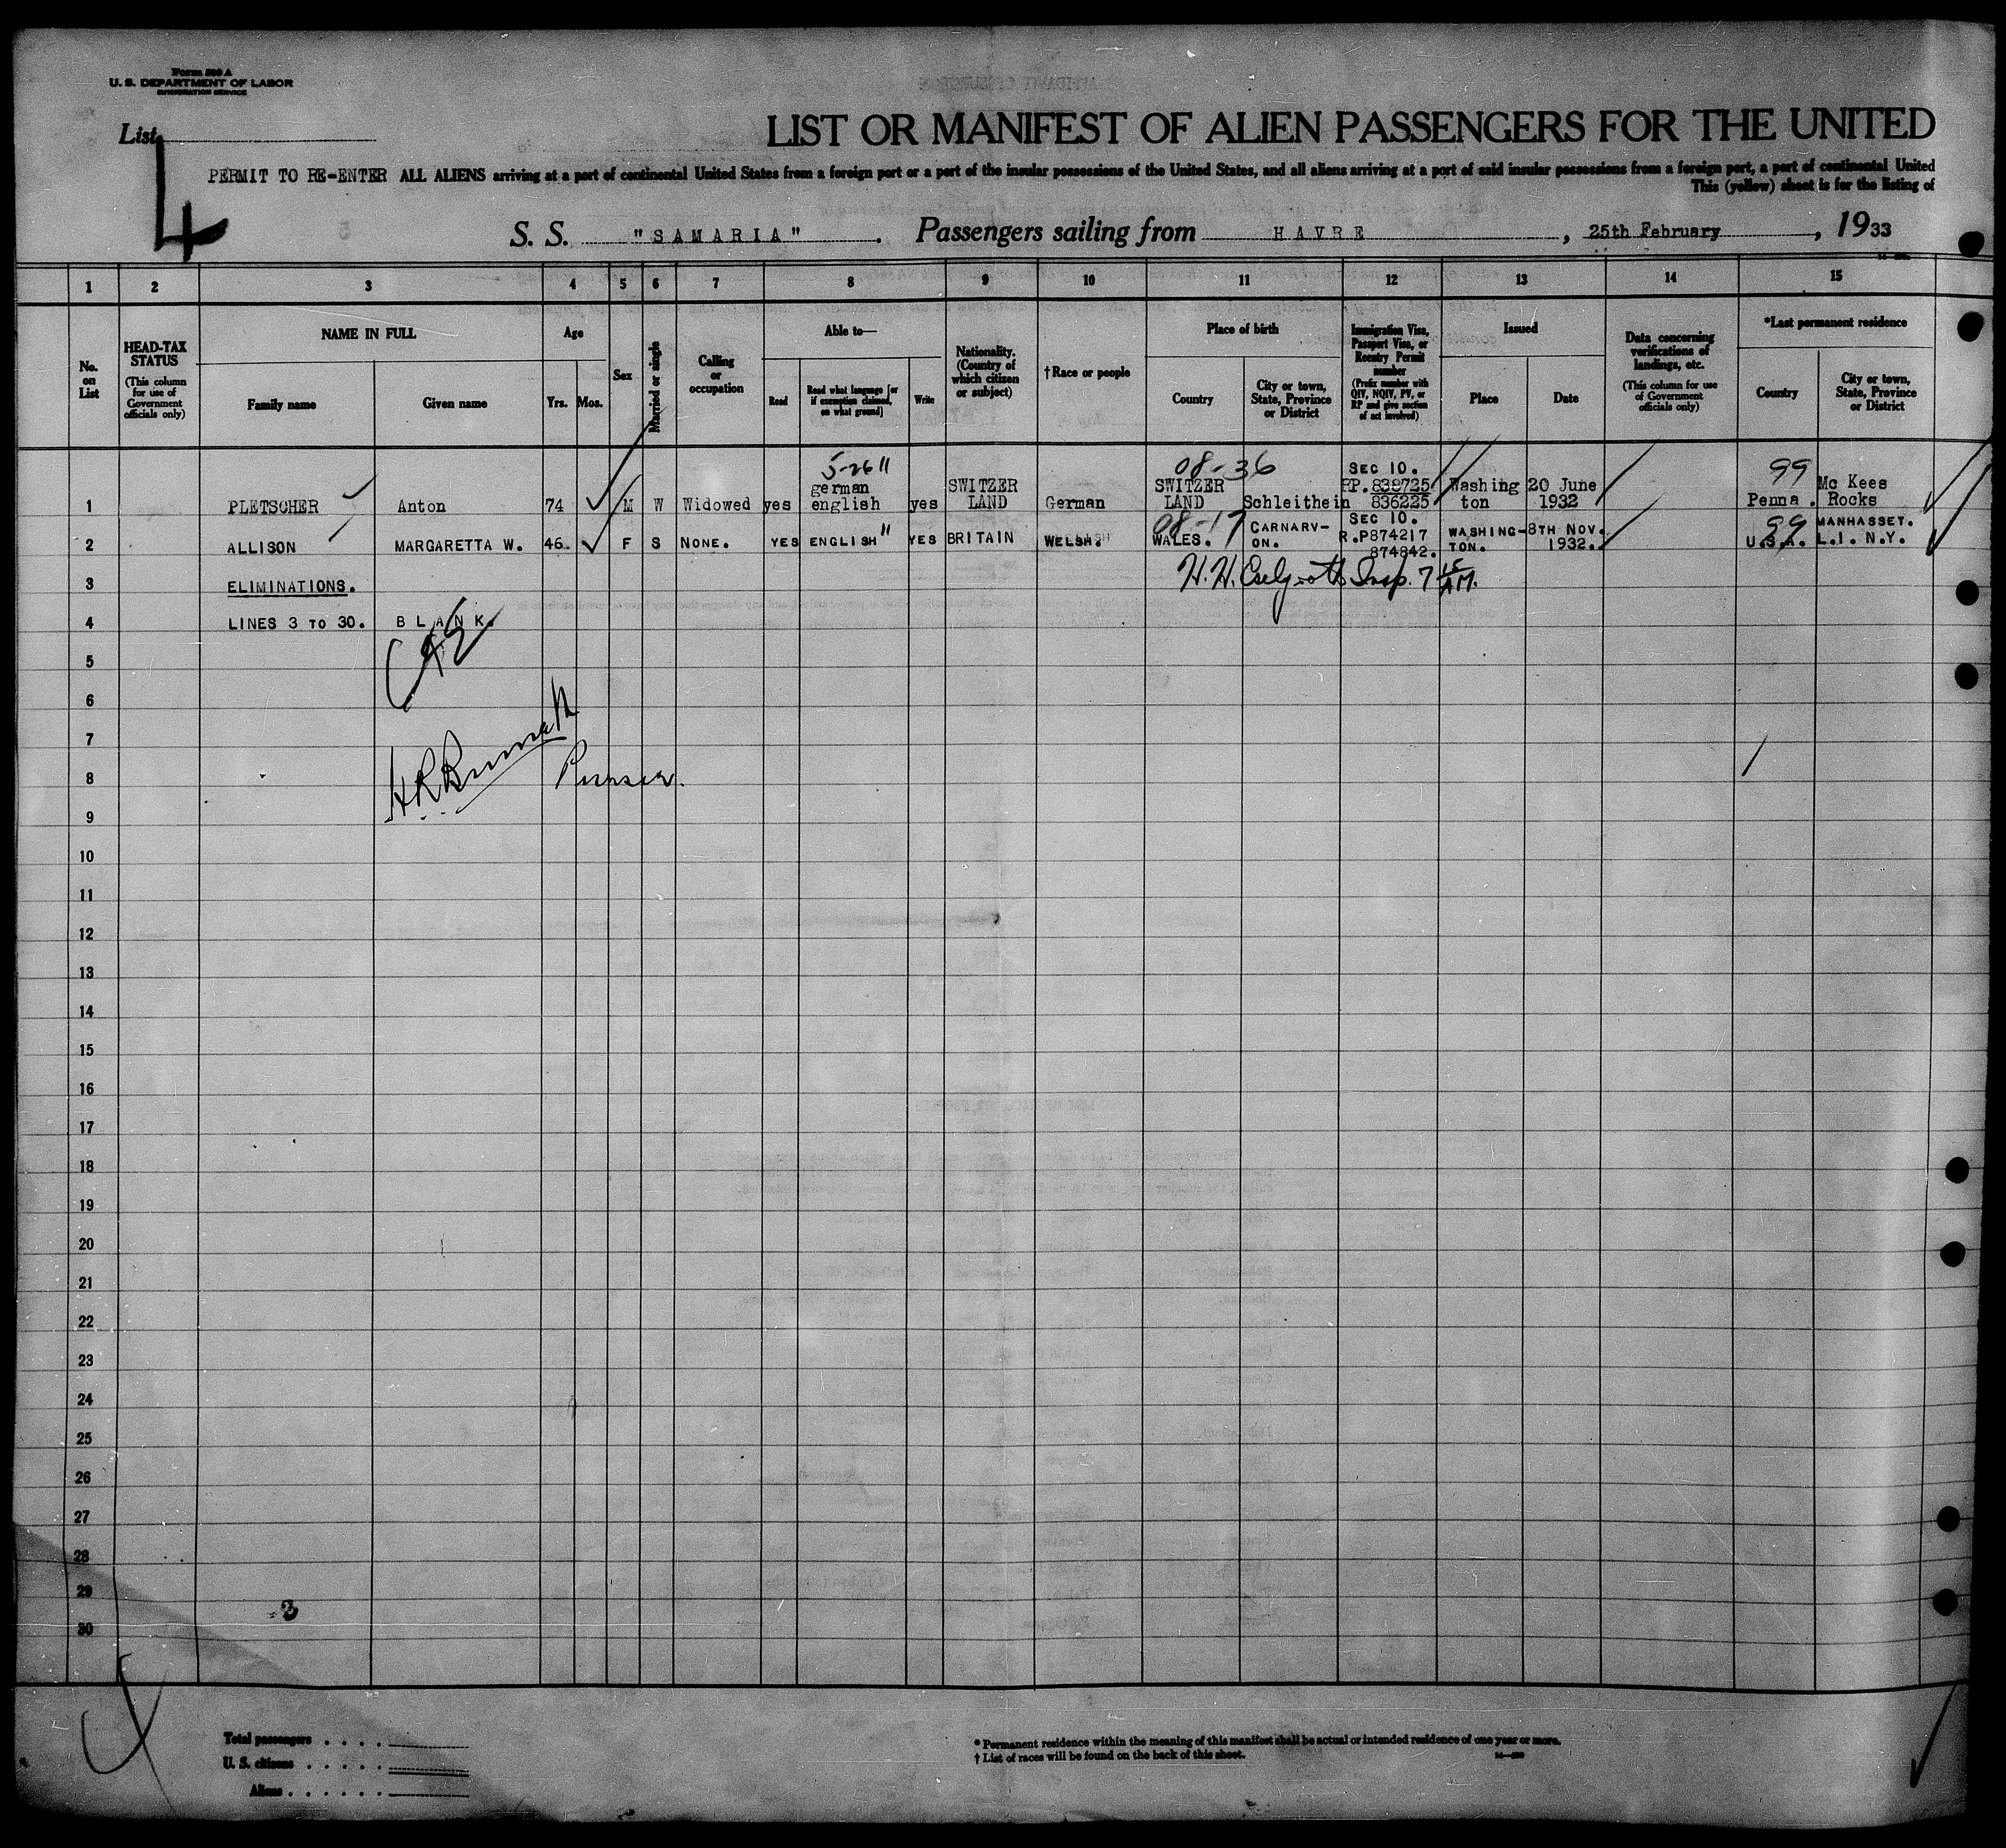 Form 500 A
U. S. DEPARTMENT OF LABOR
IMMIGRATION SERVICE
List
4
LIST OR MANIFEST OF ALIEN PASSENGERS FOR THE UNITED
PERMIT TO RE-ENTER ALL ALIENS arriving at a port of continental United States from a foreign port or a port of the insular possessions of the United States, and all aliens arriving at a port of said insular possessions from a foreign port, a port of continental United
This (yellow) sheet is for the listing of
S. S. "SAMARIA". Passengers sailing from HAVRE, 25th February, 1933
1 2 3 4 5 6 7 8 9 10 11 12 13 14 15
No. on List
HEAD-TAX STATUS (This column for use of Government officials only)
NAME IN FULL Family name Given name
Age Yrs. Mos.
Sex
Married or single
Calling or occupation
Able to— Read Read what language [or if exemption claimed, on what ground] Write
Nationality. (Country of which citizen or subject)
†Race or people
Place of birth Country City or town, State, Province or District
Immigration Visa, Passport Visa, or Reentry Permit number (Prefix number with QIV, NQIV, PV, or RP and give section of act involved)
Issued Place Date
Data concerning verifications of landings, etc. (This column for use of Government officials only)
*Last permanent residence Country City or town, State, Province or District
5-26" 08-36 SEC 10. 99
1 PLETSCHER Anton 74 M W Widowed yes german english yes SWITZER LAND German SWITZER LAND Schleithein RP.838725 836225 Washing ton 20 June 1932 Penna. Mc Kees Rocks
08-17 SEC 10. 99
2 ALLISON MARGARETTA W. 46 F S NONE. YES ENGLISH" YES BRITAIN WELSH. WALES. CARNARV-ON. R.P874217 874842. WASHING-TON. 8TH NOV. 1932. U.S.A. MANHASSET. L.I. N.Y.
3 ELIMINATIONS. H. H. Insp. 7 15 AM.
4 LINES 3 TO 30. BLANK.
5
6
7
8 Purser.
9
10
11
12
13
14
15
16
17
18
19
20
21
22
23
24
25
26
27
28
29
3
30
Total passengers . . . .
U. S. citizens . . . . .
Aliens . . . . . .
* Permanent residence within the meaning of this manifest shall be actual or intended residence of one year or more.
† List of races will be found on the back of this sheet.